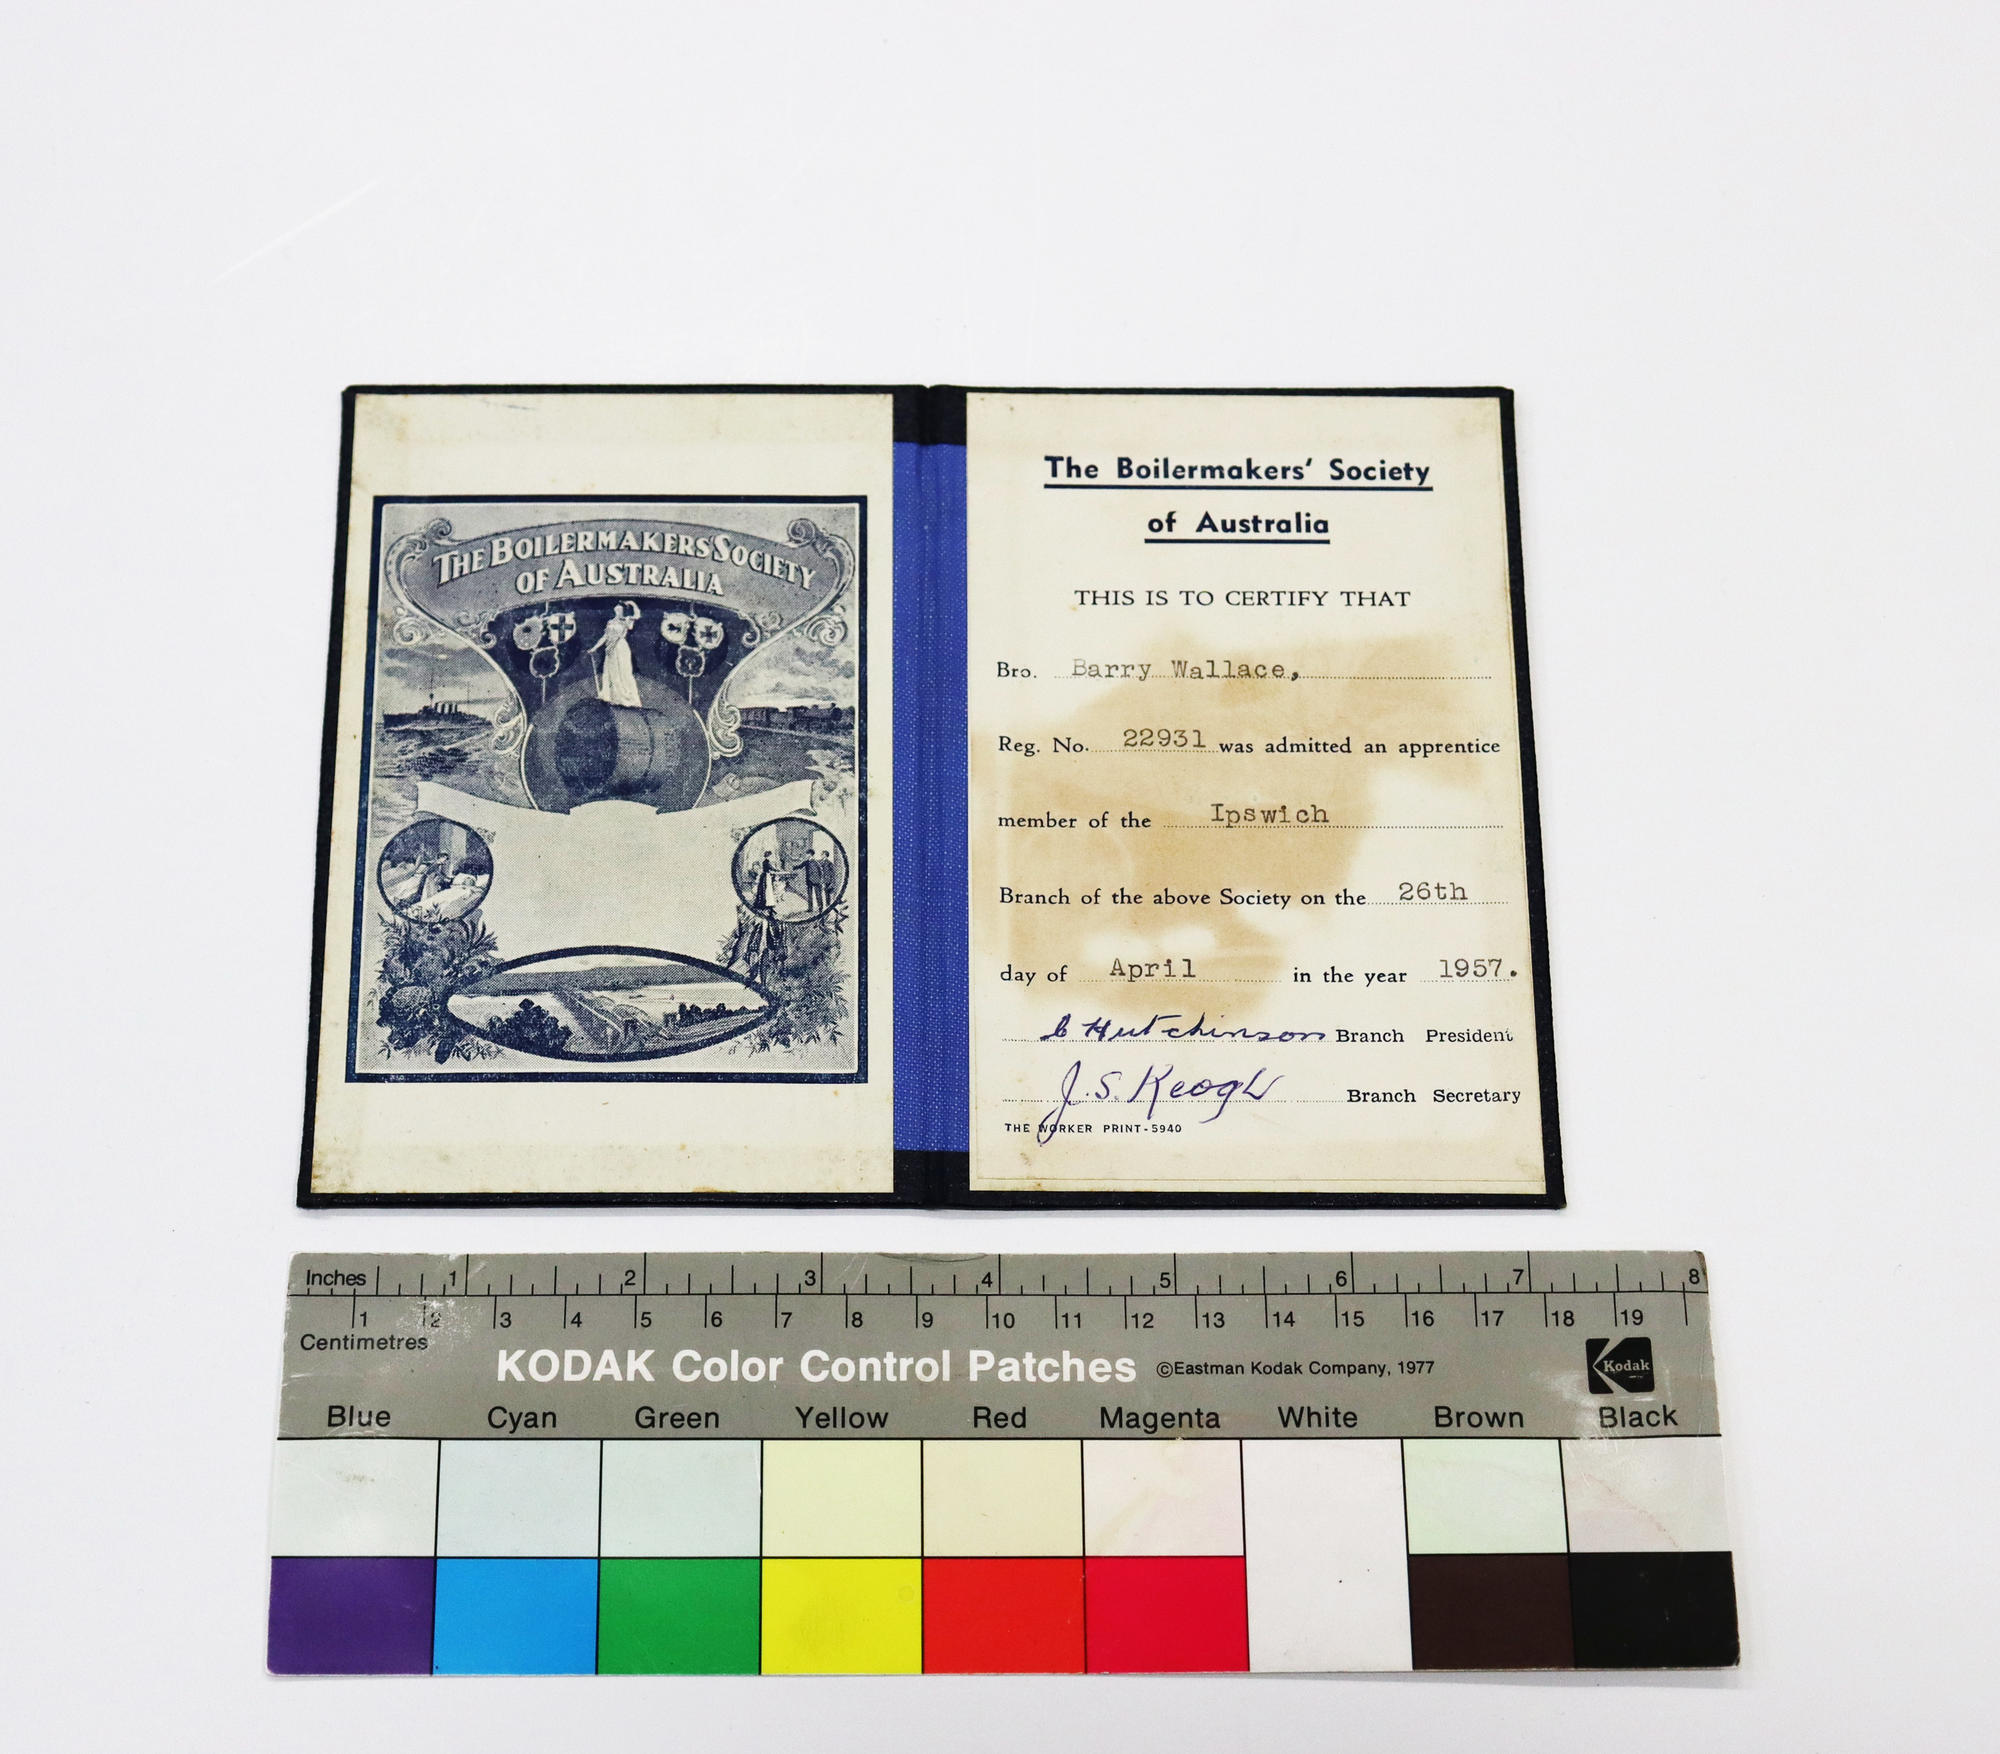 THE BOILERMAKERS' SOCIETY
OF AUSTRALIA
The Boilermakers' Society
of Australia
THIS IS TO CERTIFY THAT
Bro. Barry Wallace,
Reg. No. 22931 was admitted an apprentice
member of the Ipswich
Branch of the above Society on the 26th
day of April in the year 1957.
Hutchinson Branch President
J. S. Keogh Branch Secretary
THE WORKER PRINT-5940
Inches 1 2 3 4 5 6 7 8
1 2 3 4 5 6 7 8 9 10 11 12 13 14 15 16 17 18 19
Centimetres
KODAK Color Control Patches ©Eastman Kodak Company, 1977 Kodak
Blue Cyan Green Yellow Red Magenta White Brown Black